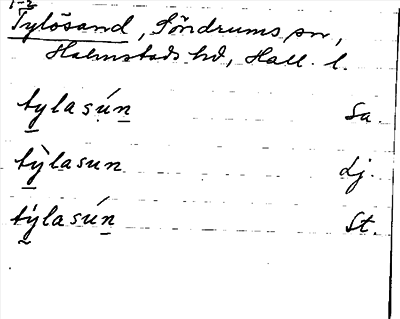 1-2
Tylösand, Söndrums sn,
Halmstads hd, Hall. l.
tylasún Sa.
tỳlasun Lj.
týlasún St.